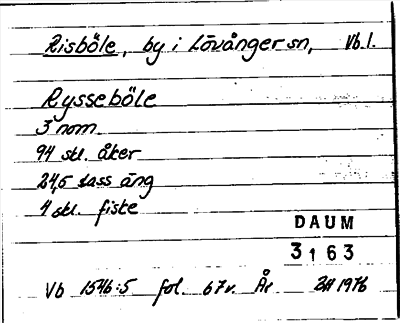 Risböle, by i Lövånger sn, Vb.l.
Rysseböle
3 nom.
94 skl. åker
24,5 lass äng
4 skl. fiske
DAUM
3163
Vb 1546:5 fol. 67v. År 1976